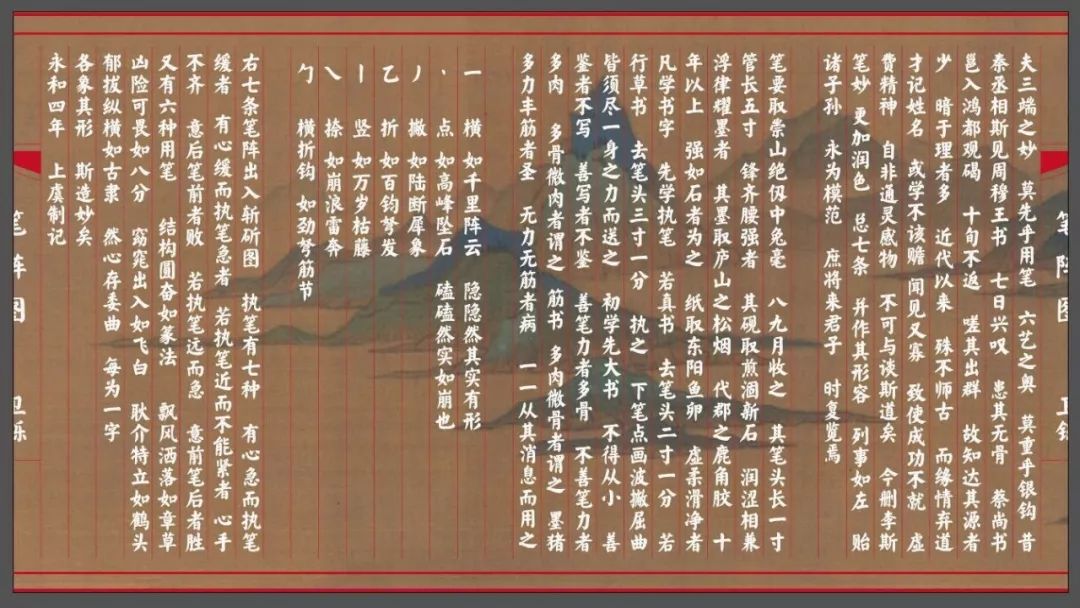 笔阵图 卫铄
夫三端之妙 莫先乎用笔 六艺之奥 莫重乎银钩 昔
秦丞相斯见周穆王书 七日兴叹 患其无骨 蔡尚书
邕入鸿都观碣 十旬不返 嗟其出群 故知达其源者
少 暗于理者多 近代以来 殊不师古 而缘情弃道
才记姓名 或学不该赡 闻见又寡 致使成功不就 虚
费精神 自非通灵感物 不可与谈斯道矣 今删李斯
笔妙 更加润色 总七条 并作其形容 列事如左 贻
诸子孙 永为模范 庶将来君子 时复览焉
笔要取崇山绝仞中兔毫 八九月收之 其笔头长一寸
管长五寸 锋齐腰强者 其砚取煎涸新石 润涩相兼
浮律耀墨者 其墨取庐山之松烟 代郡之鹿角胶 十
年以上 强如石者为之 纸取东阳鱼卵 虚柔滑净者
凡学书字 先学执笔 若真书 去笔头二寸一分 若
行草书 去笔头三寸一分 执之 下笔点画波撇屈曲
皆须尽一身之力而送之 初学先大书 不得从小 善
鉴者不写 善写者不鉴 善笔力者多骨 不善笔力者
多肉 多骨微肉者谓之 筋书 多肉微骨者谓之 墨猪
多力丰筋者圣 无力无筋者病 一一从其消息而用之
一 横 如千里阵云 隐隐然其实有形
丶 点 如高峰坠石 磕磕然实如崩也
丿 撇 如陆断犀象
乙 折 如百钧弩发
丨 竖 如万岁枯藤
㇏ 捺 如崩浪雷奔
勹 横折钩 如劲弩筋节
右七条笔阵出入斩斫图 执笔有七种 有心急而执笔
缓者 有心缓而执笔急者 若执笔近而不能紧者 心手
不齐 意后笔前者败 若执笔远而急 意前笔后者胜
又有六种用笔 结构圆奋如篆法 飘风洒落如章草
凶险可畏如八分 窈窕出入如飞白 耿介特立如鹤头
郁拔纵横如古隶 然心存委曲 每为一字
各象其形 斯造妙矣
永和四年 上虞制记
笔阵图 卫铄